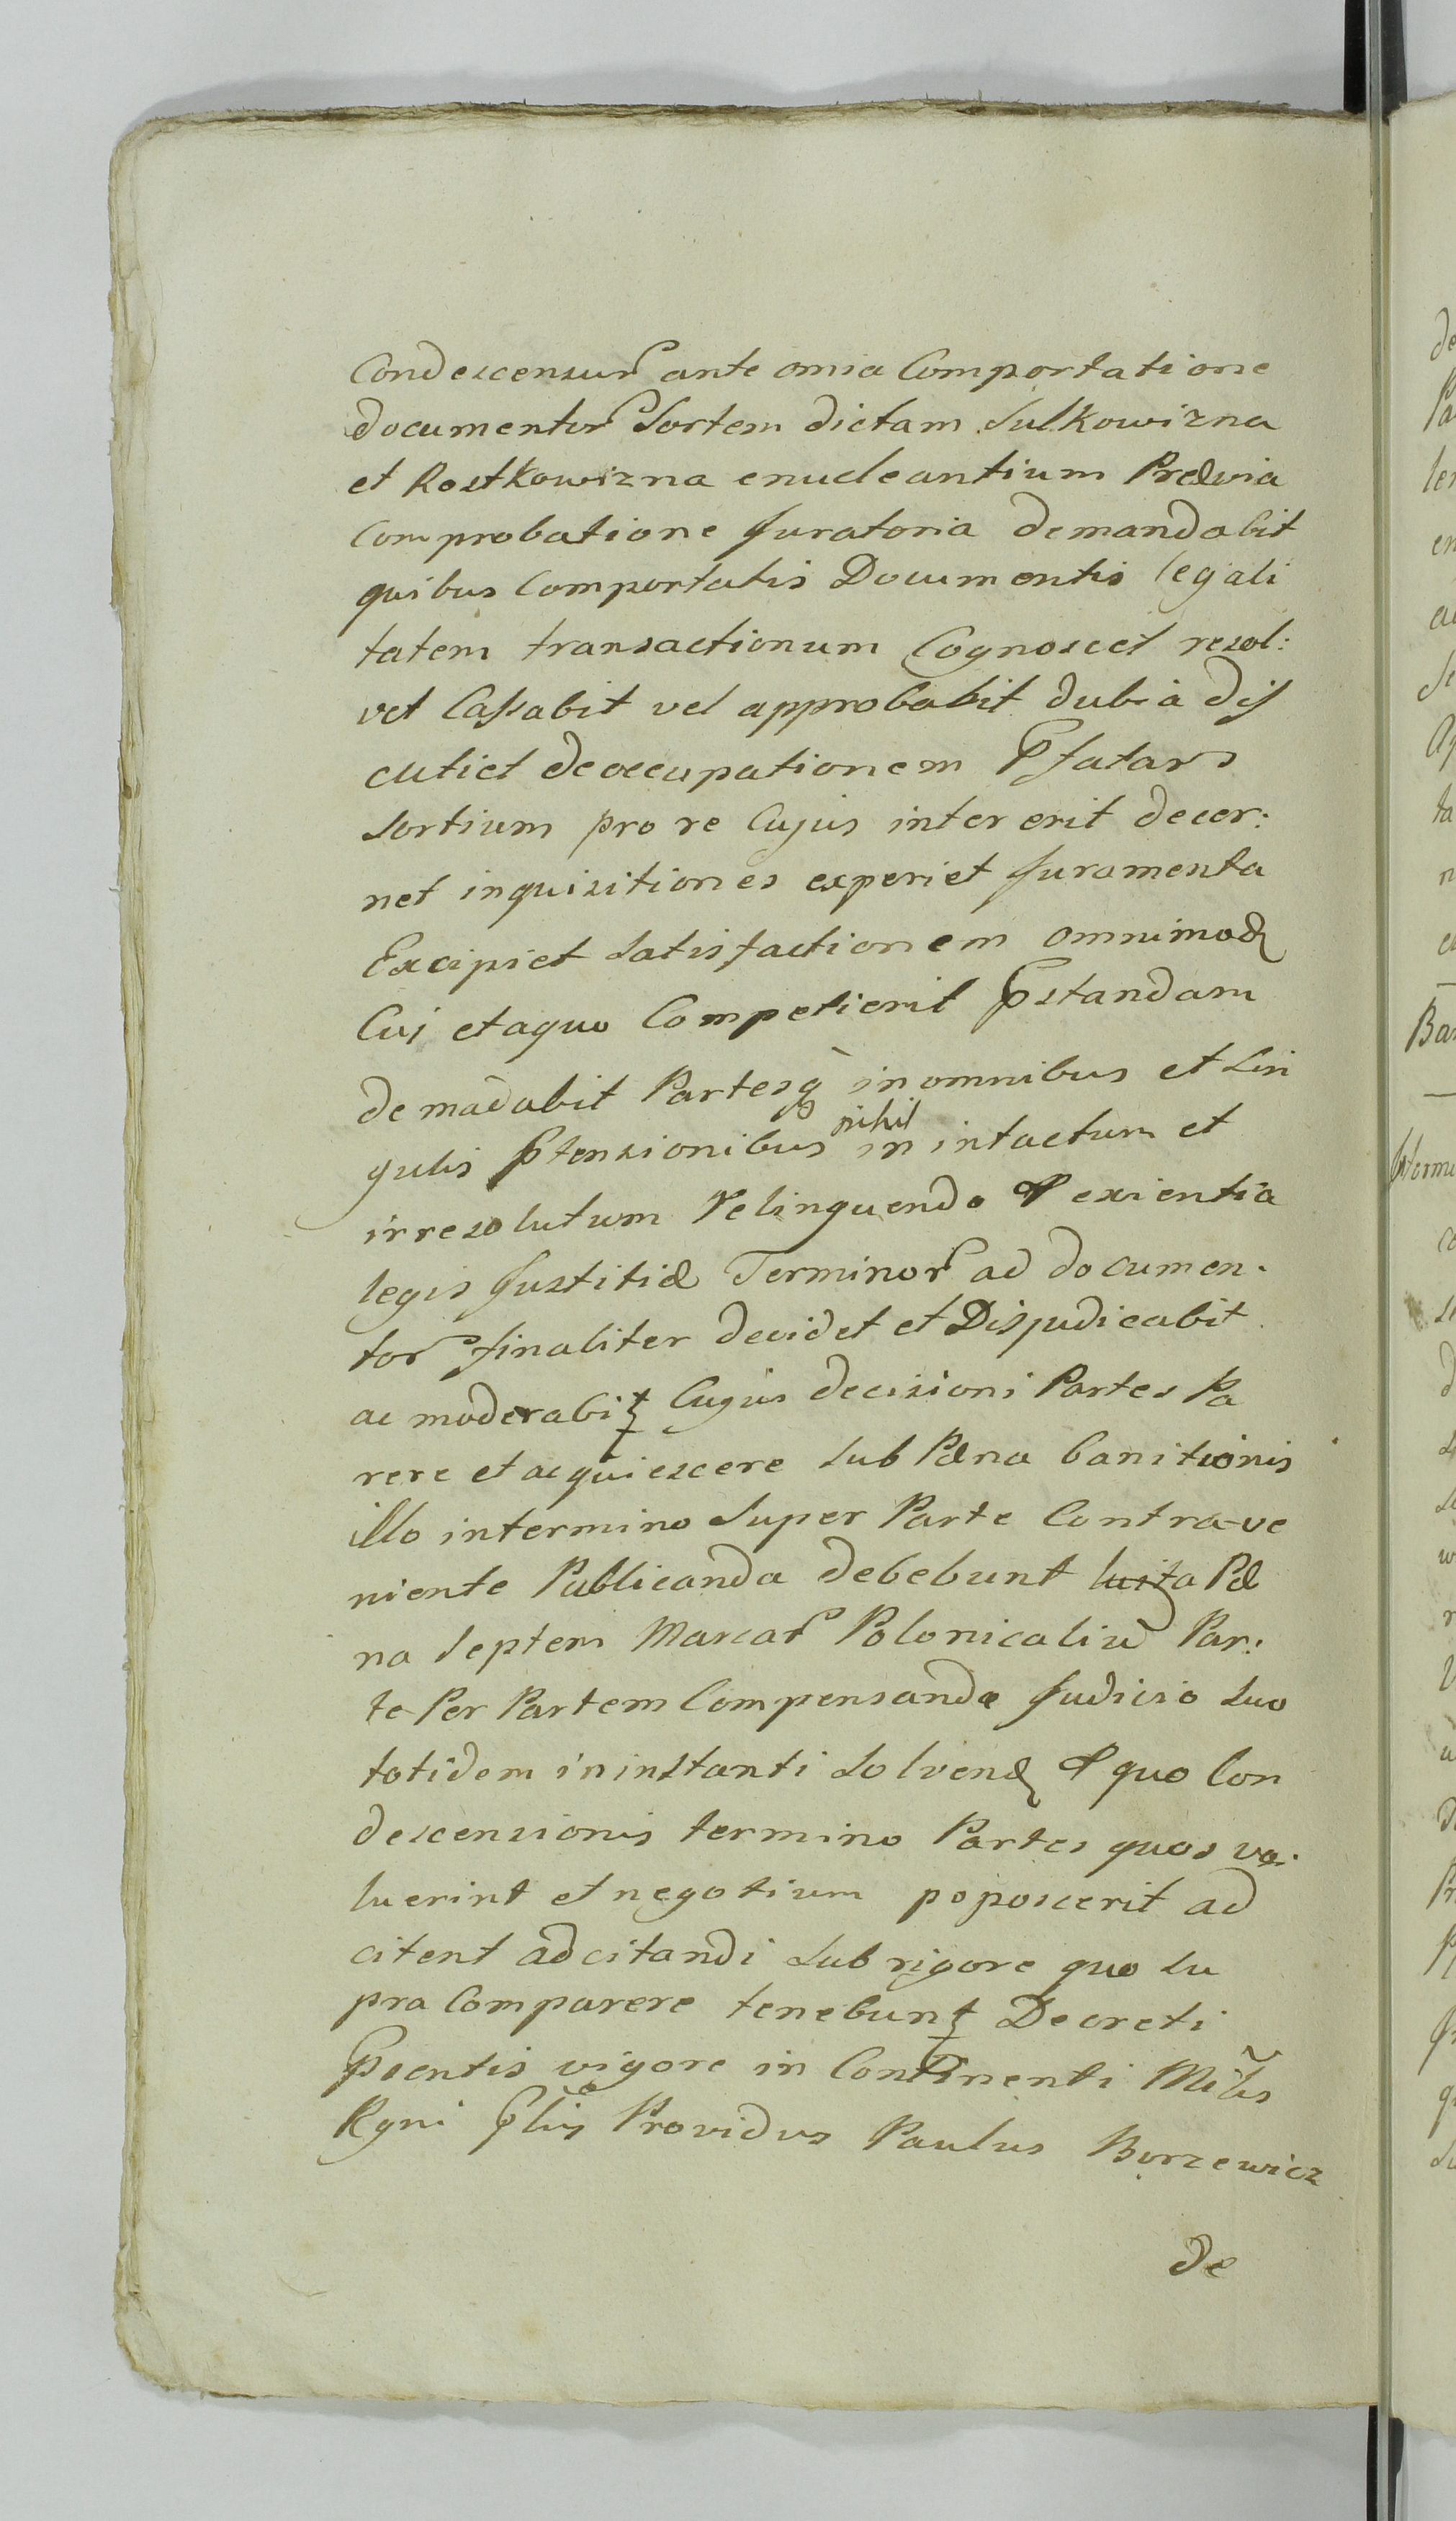 Condescensur ante omia Comportatione
documentor Sortem dictam Sulkowizna
et Rostkowizna enucleantium Prævia
comprobatione Juratoria demandabit
quibus Comportatis Documentis legali
tatem transactionum Cognoscet resol:
vet Cassabit vel approbabit dubia dis
cutiet deoccupationem Pfatars
sortium pro re Cujus intererit decer:
net inquisitiones experiet Juramenta
Excipiet satisfactionem omnimod
Cui et aquo Competierit pstandam
de mādabit Partesq in omnibus et sin
gulis ptensionibus nihil in intactum et
irresolutum relinquendo P exientia
legis Justitiæ Terminor ad documen.
tor finaliter decidet et Disjudicabit
ac moderabit Cujus decisioni Partes Pa
rere et acquiescere sub Pæna banitionis
illo intermino super Parte Contrave
niente Publicanda debebunt luita Pæ
na septem Marcar Polonicaliū Par:
te Per Partem Compensanda Judicio suo
totidem ininstanti solvend P quo Con
descensionis termino Partes quos vo:
luerint et negotium poposcerit ad
citent adcitandi sub rigore quo su
pra Comparere tenebunt Decreti
psentis vigore in Continenti Mitis
Rgni Glis Providus Paulus Borzewicz
de
de
Pa
en
ta
Ba